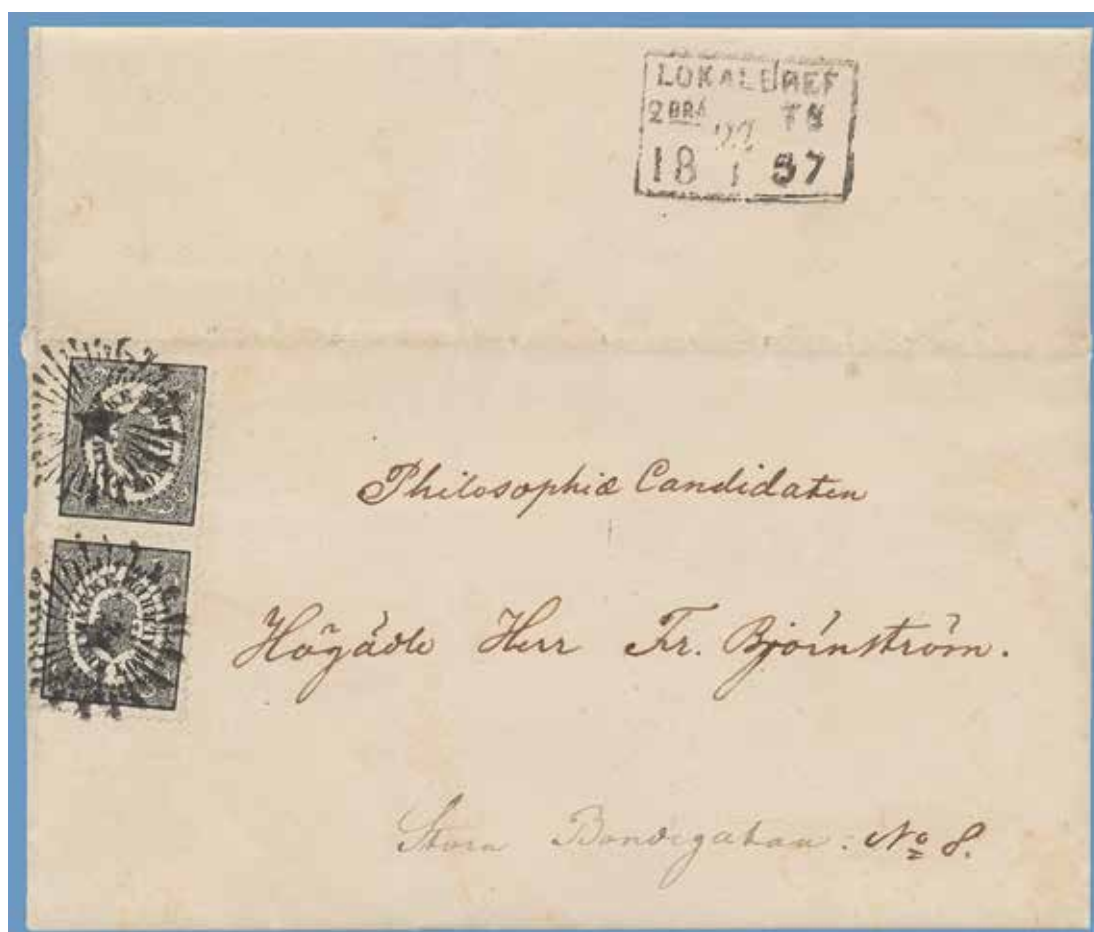 LOKALBREF
2 BRA TN
18 1 57
Philosophiæ Candidaten
Högädle Herr Fr. Björnström.
Stora Bondegatan: No 8.